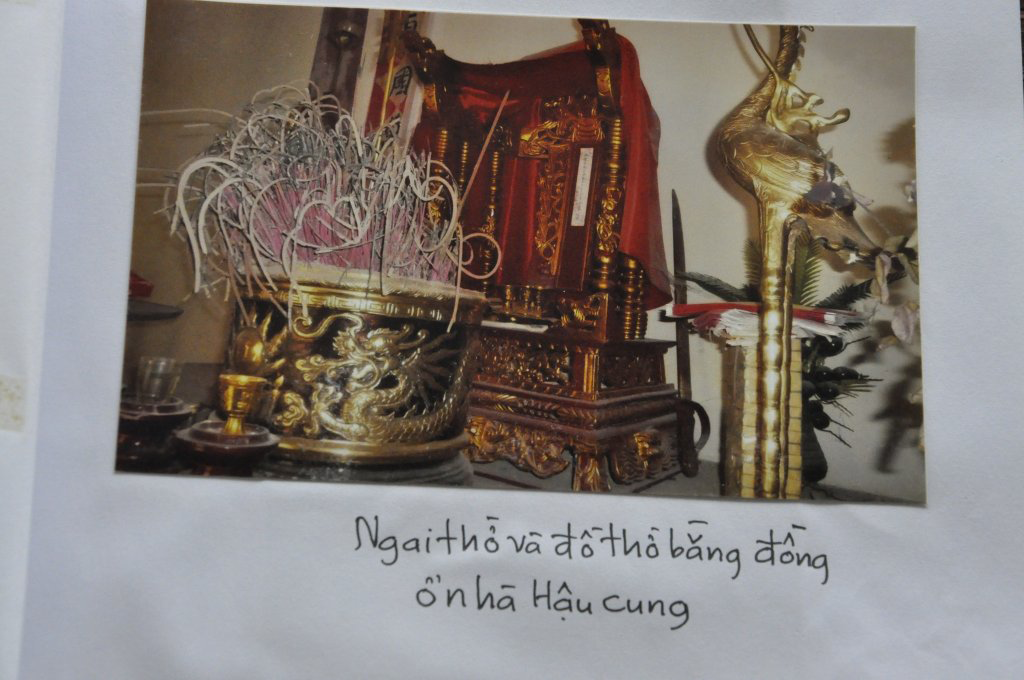 國
Ngai thờ và đồ thờ bằng đồng
ở nhà Hậu cung